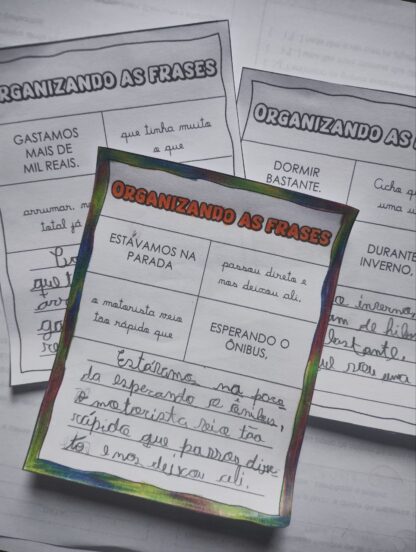 ORGANIZANDO AS FRASES
GASTAMOS
MAIS DE
MIL REAIS.
que tinha muito
o que
arrumar,
total já
ORGANIZANDO AS
DORMIR
BASTANTE.
Acho q
uma
DURANTE
INVERNO,
o inverno,
bastante,
uma
ORGANIZANDO AS FRASES
ESTÁVAMOS NA
PARADA
passou direto e
nos deixou ali.
o motorista veio
tão rápido que
ESPERANDO O
ÔNIBUS,
Estávamos na para
da esperando o ônibus,
o motorista veio tão
rápido que passou dire
to e nos deixou ali.